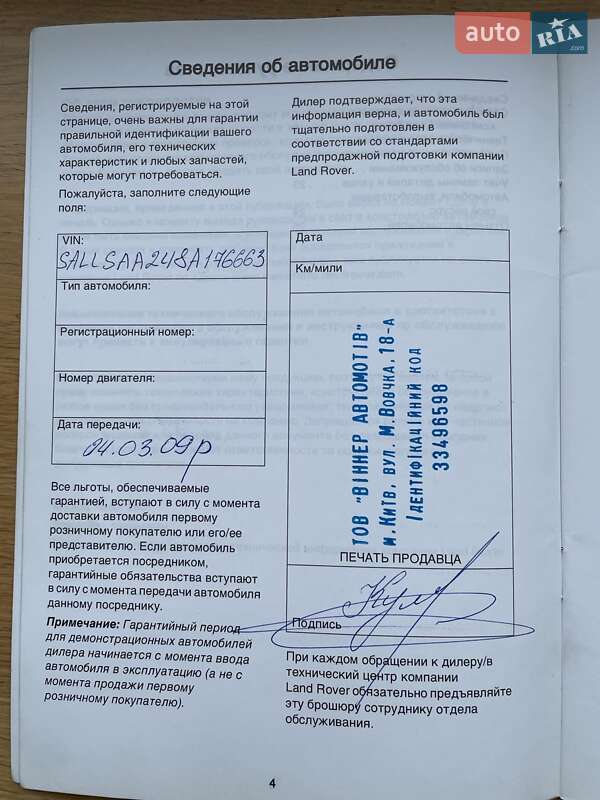 auto RIA.com
Сведения об автомобиле
Сведения, регистрируемые на этой
странице, очень важны для гарантии
правильной идентификации вашего
автомобиля, его технических
характеристик и любых запчастей,
которые могут потребоваться.
Пожалуйста, заполните следующие
поля:
VIN:
SALLSAA248A176663
Тип автомобиля:
Регистрационный номер:
Номер двигателя:
Дата передачи:
24.03.09р
Все льготы, обеспечиваемые
гарантией, вступают в силу с момента
доставки автомобиля первому
розничному покупателю или его/ее
представителю. Если автомобиль
приобретается посредником,
гарантийные обязательства вступают
в силу с момента передачи автомобиля
данному посреднику.
Примечание: Гарантийный период
для демонстрационных автомобилей
дилера начинается с момента ввода
автомобиля в эксплуатацию (а не с
момента продажи первому
розничному покупателю).
Дилер подтверждает, что эта
информация верна, и автомобиль был
тщательно подготовлен в
соответствии со стандартами
предпродажной подготовки компании
Land Rover.
Дата
Км/мили
ТОВ "ВІННЕР АВТОМОТІВ"
м.Київ, вул. М.Вовчка,18-А
Ідентифікаційний код
33496598
ПЕЧАТЬ ПРОДАВЦА
Подпись
При каждом обращении к дилеру/в
технический центр компании
Land Rover обязательно предъявляйте
эту брошюру сотруднику отдела
обслуживания.
4